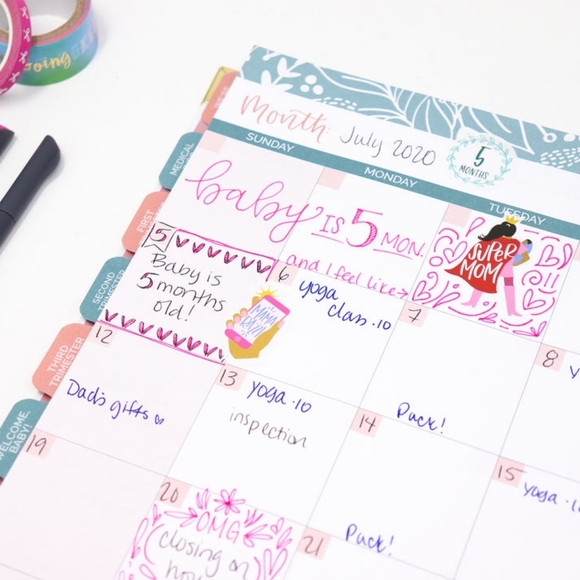 going
Month: July 2020
5
MONTHS
SUNDAY
MONDAY
TUESDAY
baby IS 5 MON.
and I feel like→
SUPER
MOM
MEDICAL
FIRST
SECOND
TRIMESTER
THIRD
TRIMESTER
WELCOME,
BABY!
5
Baby is
5 months
old!
6
yoga
class · 10
7
Pack!
8
12
Dad's gifts
13
yoga · 10
inspection
14
Pack!
15
yoga
19
20
OMG
closing on
21